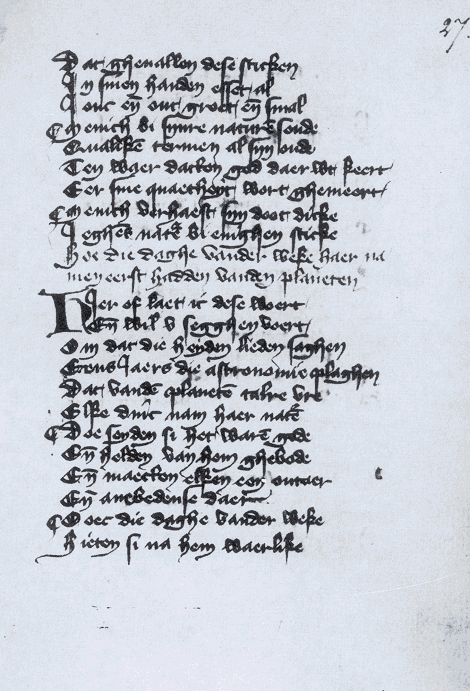 27
Dat ghevallen dese sticken
In sinen handen esset al
Jonc eñ out groot eñ smal
Menich bi sinre naturē soude
Qualikē termen al sijn oude
Ten waer datten god daer wt keert
Eer sine quaetheyt wort ghemeert
Menich verhaest sijn doot dicke
Jeghēs natr̄ bi enighen sticke
Hoe die daghe vander weke haer na
men eerst hadden vanden planeten
Hier of laet ic dese woert
Eñ wil v segghen voert
Om dat die heyden lieden saghen
Eens Jaers die astronomie plaghen
Dat vandē planetē talre vre
Elke dinc nam haer natr̄
Doe seyden si het warē gode
Eñ helden van hem ghebode
Eñ maecten elken een outaer
Eñ anebedense daer
Oec die daghe vander weke
Hieten si na hem waerlike